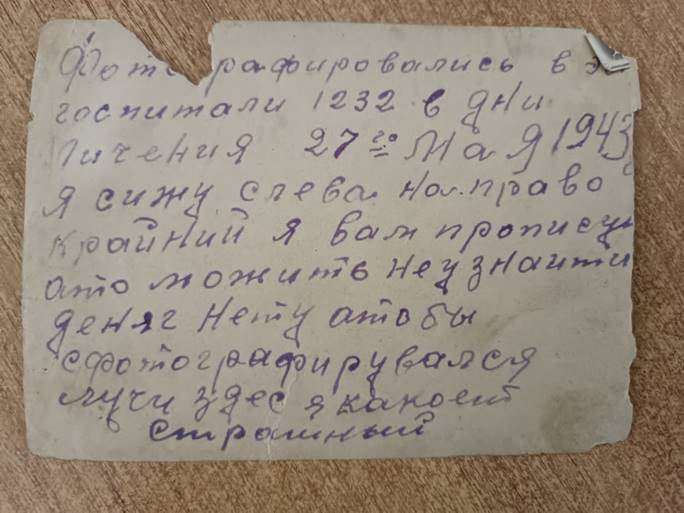 Фотографировались в
госпитали 1232 в дни
личения 27го Мая 1943
я сижу слева на право
крайний я вам прописую
ато можить неузнаити
деняг нету атобы
сфотографирувался
лучи здес я какоет
страшный